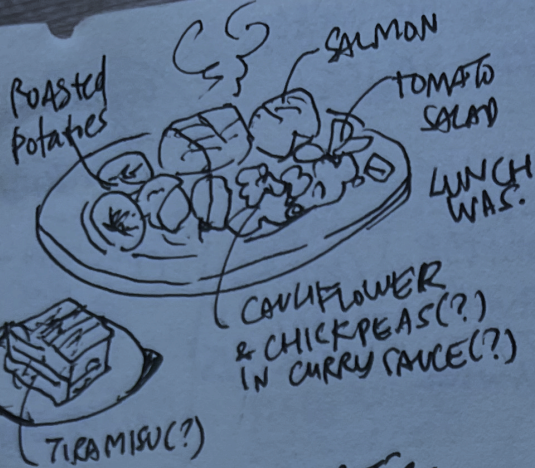 SALMON
ROASTED
POTATOES
TOMATO
SALAD
LUNCH
WAS.
CAULIFLOWER
& CHICKPEAS(?)
IN CURRY SAUCE(?)
TIRAMISU(?)